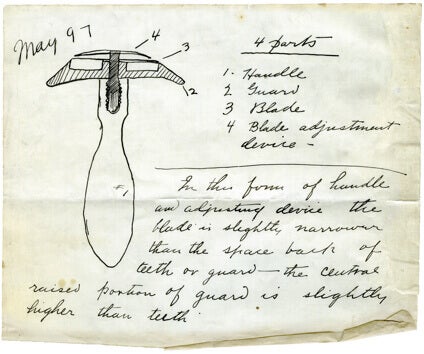 May 97
4
3
2
#1
4 parts
1. Handle
2 Guard
3 Blade
4 Blade adjustment
device -
In this form of handle
and adjusting device the
blade is slightly narrower
than the space back of
teeth or guard — the central
raised portion of guard is slightly
higher than teeth